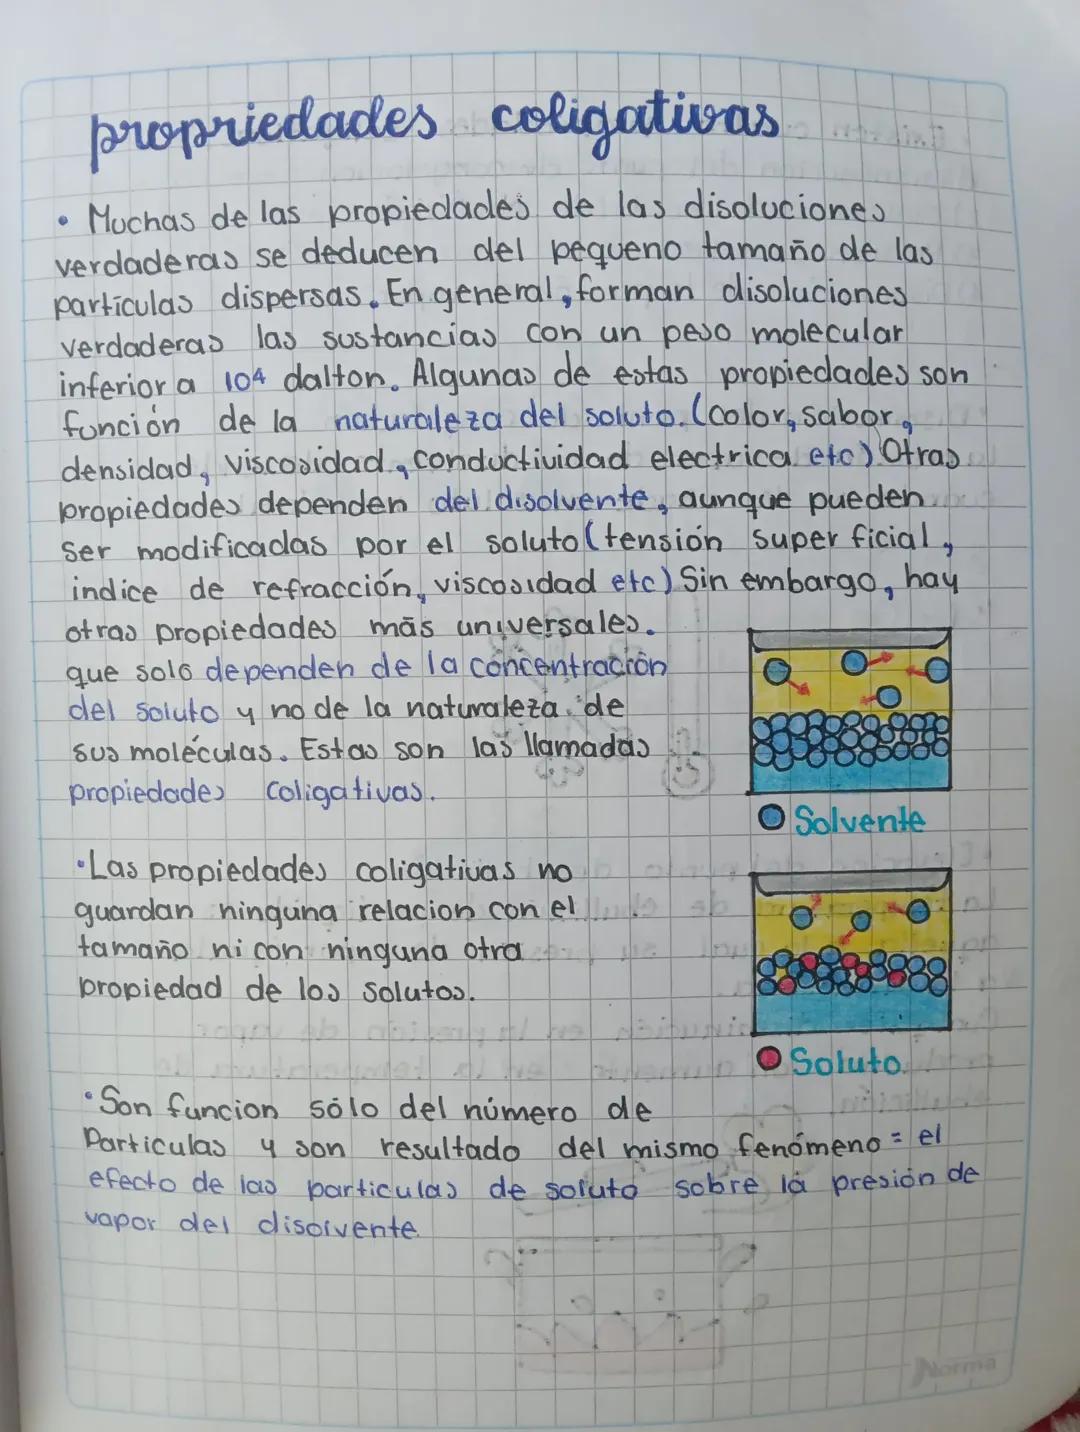 propriedades coligativas
• Muchas de las propiedades de las disoluciones
verdaderas se deducen del pequeno tamaño de las
partículas dispersas. En general, forman disoluciones
verdaderas las sustancias con un peso molecular
inferior a 10⁴ dalton. Algunas de estas propiedades son
función de la naturaleza del soluto. (color, sabor,
densidad, viscosidad, conductividad electrica etc) Otras
propiedades dependen del disolvente, aunque pueden
ser modificadas por el soluto (tensión super ficial,
indice de refracción, viscosidad etc) Sin embargo, hay
otras propiedades más universales.
que solo dependen de la concentración
del soluto y no de la naturaleza de
sus moléculas. Estas son las llamadas
propiedades coligativas.
Solvente
• Las propiedades coligativas no
guardan ninguna relacion con el
tamaño ni con ninguna otra
propiedad de los solutos.
Soluto
• Son funcion sólo del número de
Particulas y son resultado del mismo fenómeno = el
efecto de las particulas de soluto sobre la presión de
vapor del disolvente
Norma